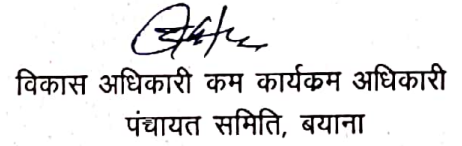 विकास अधिकारी कम कार्यकम अधिकारी
पंचायत समिति, बयाना